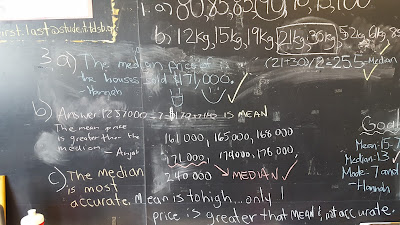 first.last@student.tdsb.on
1. a) 80,85,85,90,
b) 12kg, 15kg, 19kg, 21kg, 30kg, 52kg,
(21+30)/2=25.5 ←Median
3. a) The median price of
the houses sold $171,000.
-Hannah
b) Answer 1237000÷7= is MEAN
The mean price
is greater than the
median - Anjali
161 000, 165 000, 168 000
171 000, 174 000, 178 000,
240 000 → MEDIAN. ✓
c) The median
is most
accurate. Mean is to high... only 1
price is greater that mean & not accurate.
Goal
Mean-15-7
Median-13
Mode-7 and
-Hannah